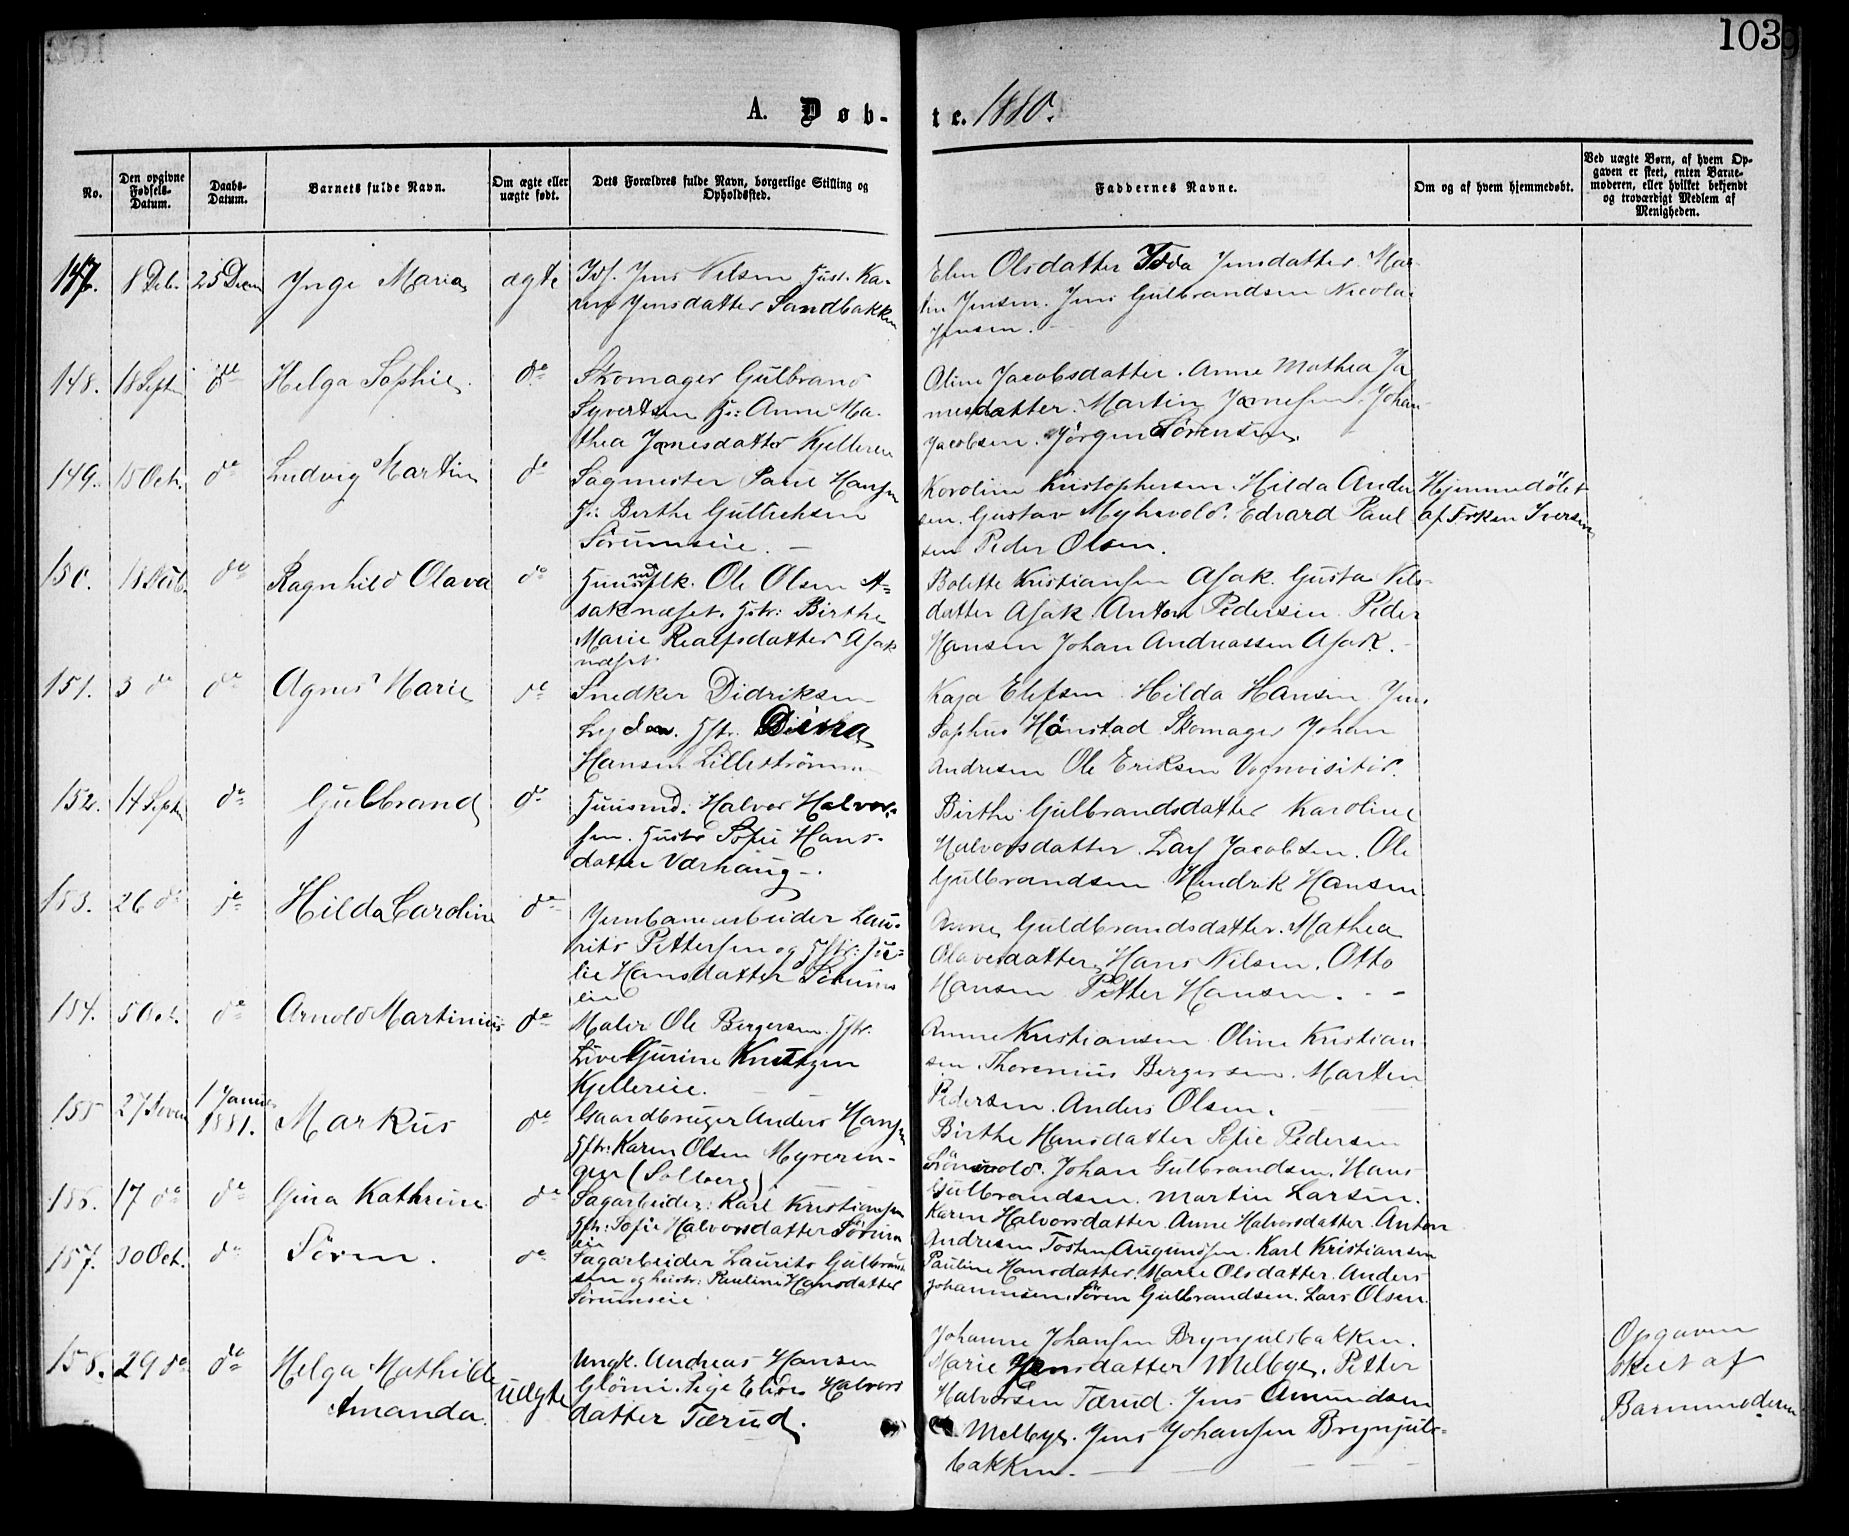 103
A. Døb-
te. 1880.
No.
Den opgivne Fødsels-Datum.
Daabs-Datum.
Barnets fulde Navn.
Om ægte eller uægte født.
Dets Forældres fulde Navn, borgerlige Stilling og Opholdssted.
Faddernes Navne.
Om og af hvem hjemmedøbt.
Ved uægte Børn, af hvem Op-
gaven er skeet, enten Barne-
moderen, eller hvilket bekjendt
og troværdigt Medlem af
Menigheden.
147. 8 Deb. 25 Decem Inge Maria ægte
Jens Nilsen Hust. Ka-
Jensdatter Sandbakken
Elen Olsdatter Jensdatter Mar-
tin Jensen. Jens Gulbrandsen Nicolai
Jensen.
148. 18 Septr de Helga Sophie. de
Skomager Gulbrand
Syvertsen H: Anne Ma-
thea Jonesdatter Kjelleren
Oline Jacobsdatter. Anne Mathea Jo
nesdatter. Martin Jonesen. Johan
Jacobsen. Jörgen Sörensen.
149. 15 Oct. de Ludvig Martin de
Sagmester Paul Hansen
H: Berthe Gulliksen
Sörumseie.
Karoline Kristophersen. Hilda Ander
sen. Gustav Myhrvold. Edvard Paul
sen Peder Olsen.
Hjemmedöbt
af Frken Iversen
150. 18 de Ragnhild Olava de
Ole Olsen A-
saknæset. Hstr: Birthe
Marie Realfsdatter Asak
næset.
Bolette Kristiansen Asak. Gusta Nils-
datter Asak. Anton Pedersen Peder
Hansen Johan Andreassen Asak.
151. 3 de de Agnes Marie de
Snedker Didriksen
Hstr. Dina
Hansen Lilleströmmen
Kaja Elefsen. Hilda Hansen Jens
Sophus Hönstad Skomager Johan
Andresen Ole Eriksen Vognvisitör.
152. 14 Septr de Gulbrand de
Huusmd. Halvor Halvor-
sen. Hustr Sofie Hans-
datter Værhaug.
Birthe Gulbrandsdatter Karoline
Halvorsdatter. Lars Jacobsen. Ole
Gulbrandsen Hendrik Hansen
153. 26 de de Hilda Caroline de
Jernbanearbeider Lau-
rits Pettersen og Hstr: Ju-
lie Hansdatter Sörums
eie
Anne Guldbrandsdatter. Mathea
Olavesdatter. Hans Nilsen. Otto
Hansen Petter Hansen.
154. 5 Oct. de Arnold Martinius de
Maler Ole Bergersen. Hstr.
Live Gurine Knutzen
Kjellereie.
Anne Kristiansen Oline Kristian
sen. Thorenius Bergersen. Marten
Pedersen. Anders Olsen.
155 27 Novem 1 Januar 1881. Markus de
Gaardbruger Anders Hansen
Hstr: Karen Olsen Myreren-
gen (Solberg)
Birthe Hansdatter Sofie Pedersen
Johan Gulbrandsen. Hans
Gulbrandsen. Martin Larsen.
156. 17 de de Gina Kathrine de
Sagarbeider: Karl Kristiansen
Hstr: Sofie Halvorsdatter Sörum
eie
Karen Halvorsdatter. Anne Halvorsdatter. Anton
Andresen Tosten Augundsen. Karl Kristiansen
157. 30 Oct. de Sören. de
Sagarbeider Laurits Gulbrand
sen og hustr: Pauline Hansdatter
Sörumseie
Pauline Hansdatter. Marie Olsdatter. Anders
Johannesen. Sören Gulbrandsen. Lars Olsen.
158. 29 de de Helga Mathilde
Amanda. uægte
Ungk. Andreas Hansen
Glömi. Pige Elise Halvors
datter Tærud.
Johanne Johansen Brynjulsbakken.
Marie Jensdatter Melbye. Petter
Halvorsen Tærud. Jens Amundsen
Melbye. Jens Johansen Brynjuls-
bakken.
Opgaven
skeet af
Barnemoderen